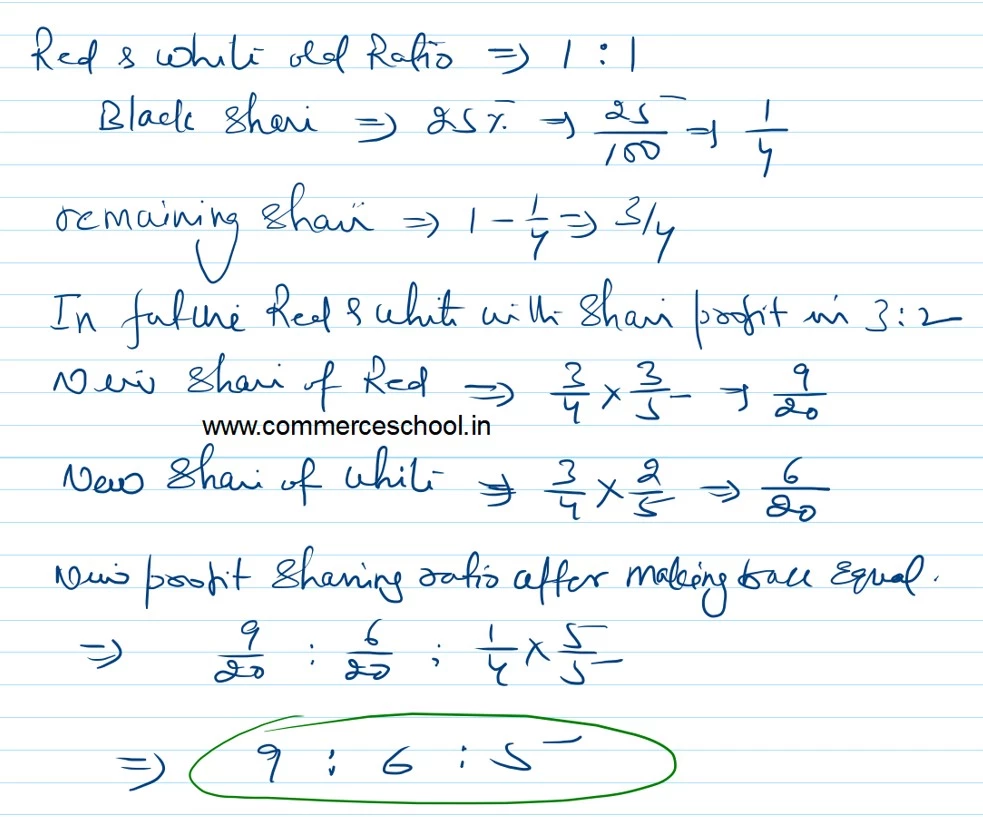 Red & White old Ratio ⇒ 1 : 1
Black Share ⇒ 25% → 25/100 ⇒ 1/4
remaining Share ⇒ 1 - 1/4 ⇒ 3/4
In future Red & White will Share profit in 3 : 2
New Share of Red ⇒ 3/4 × 3/5 ⇒ 9/20
www.commerceschool.in
New Share of White ⇒ 3/4 × 2/5 ⇒ 6/20
New profit Sharing ratio after making base Equal.
⇒ 9/20 : 6/20 : 1/4 × 5/5
⇒ 9 : 6 : 5